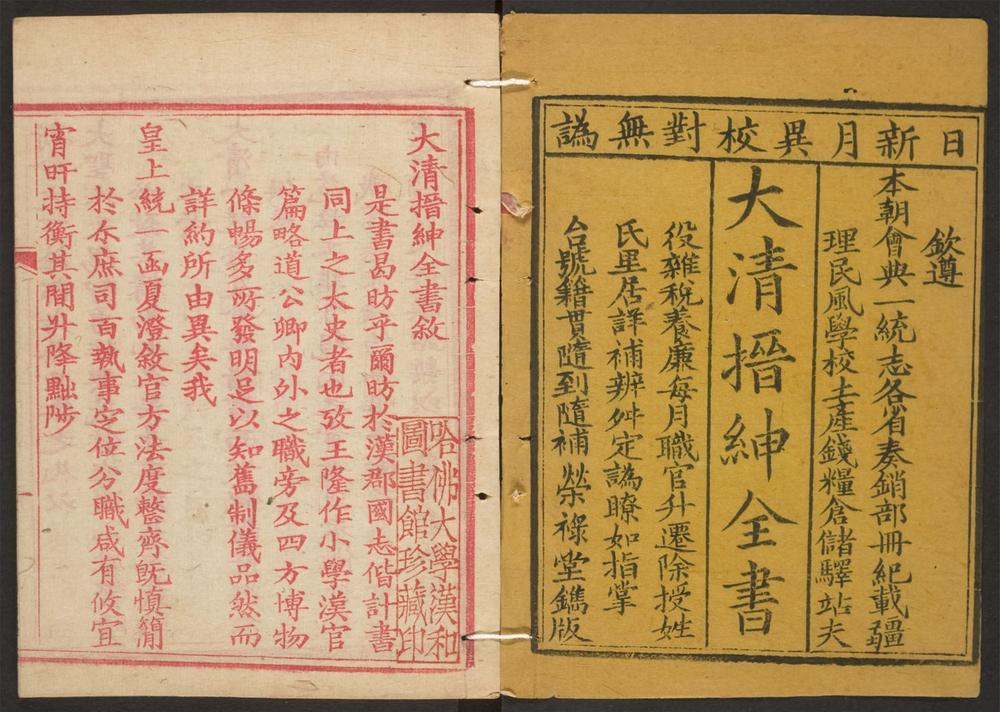 日新月異校對無譌
欽遵
本朝會典一統志各省奏銷部冊紀載疆
理民風學校土產錢糧倉儲驛站夫
大清搢紳全書
役雜稅養廉每月職官升遷除授姓
氏里居詳補辨舛定譌瞭如指掌
台號籍貫隨到隨補 榮祿堂鐫版
大清搢紳全書敘
是書曷昉乎爾昉於漢郡國志偕計書
同上之太史者也攷王隆作小學漢官
篇略道公卿內外之職旁及四方博物
條暢多所發明足以知舊制儀品然而
詳約所由異矣我
皇上統一函夏澄敘官方法度整齊既慎簡
於尒庶司百執事定位分職咸有攸宜
宵旰持衡其間升降黜陟
哈佛大學漢和
圖書館珍藏印